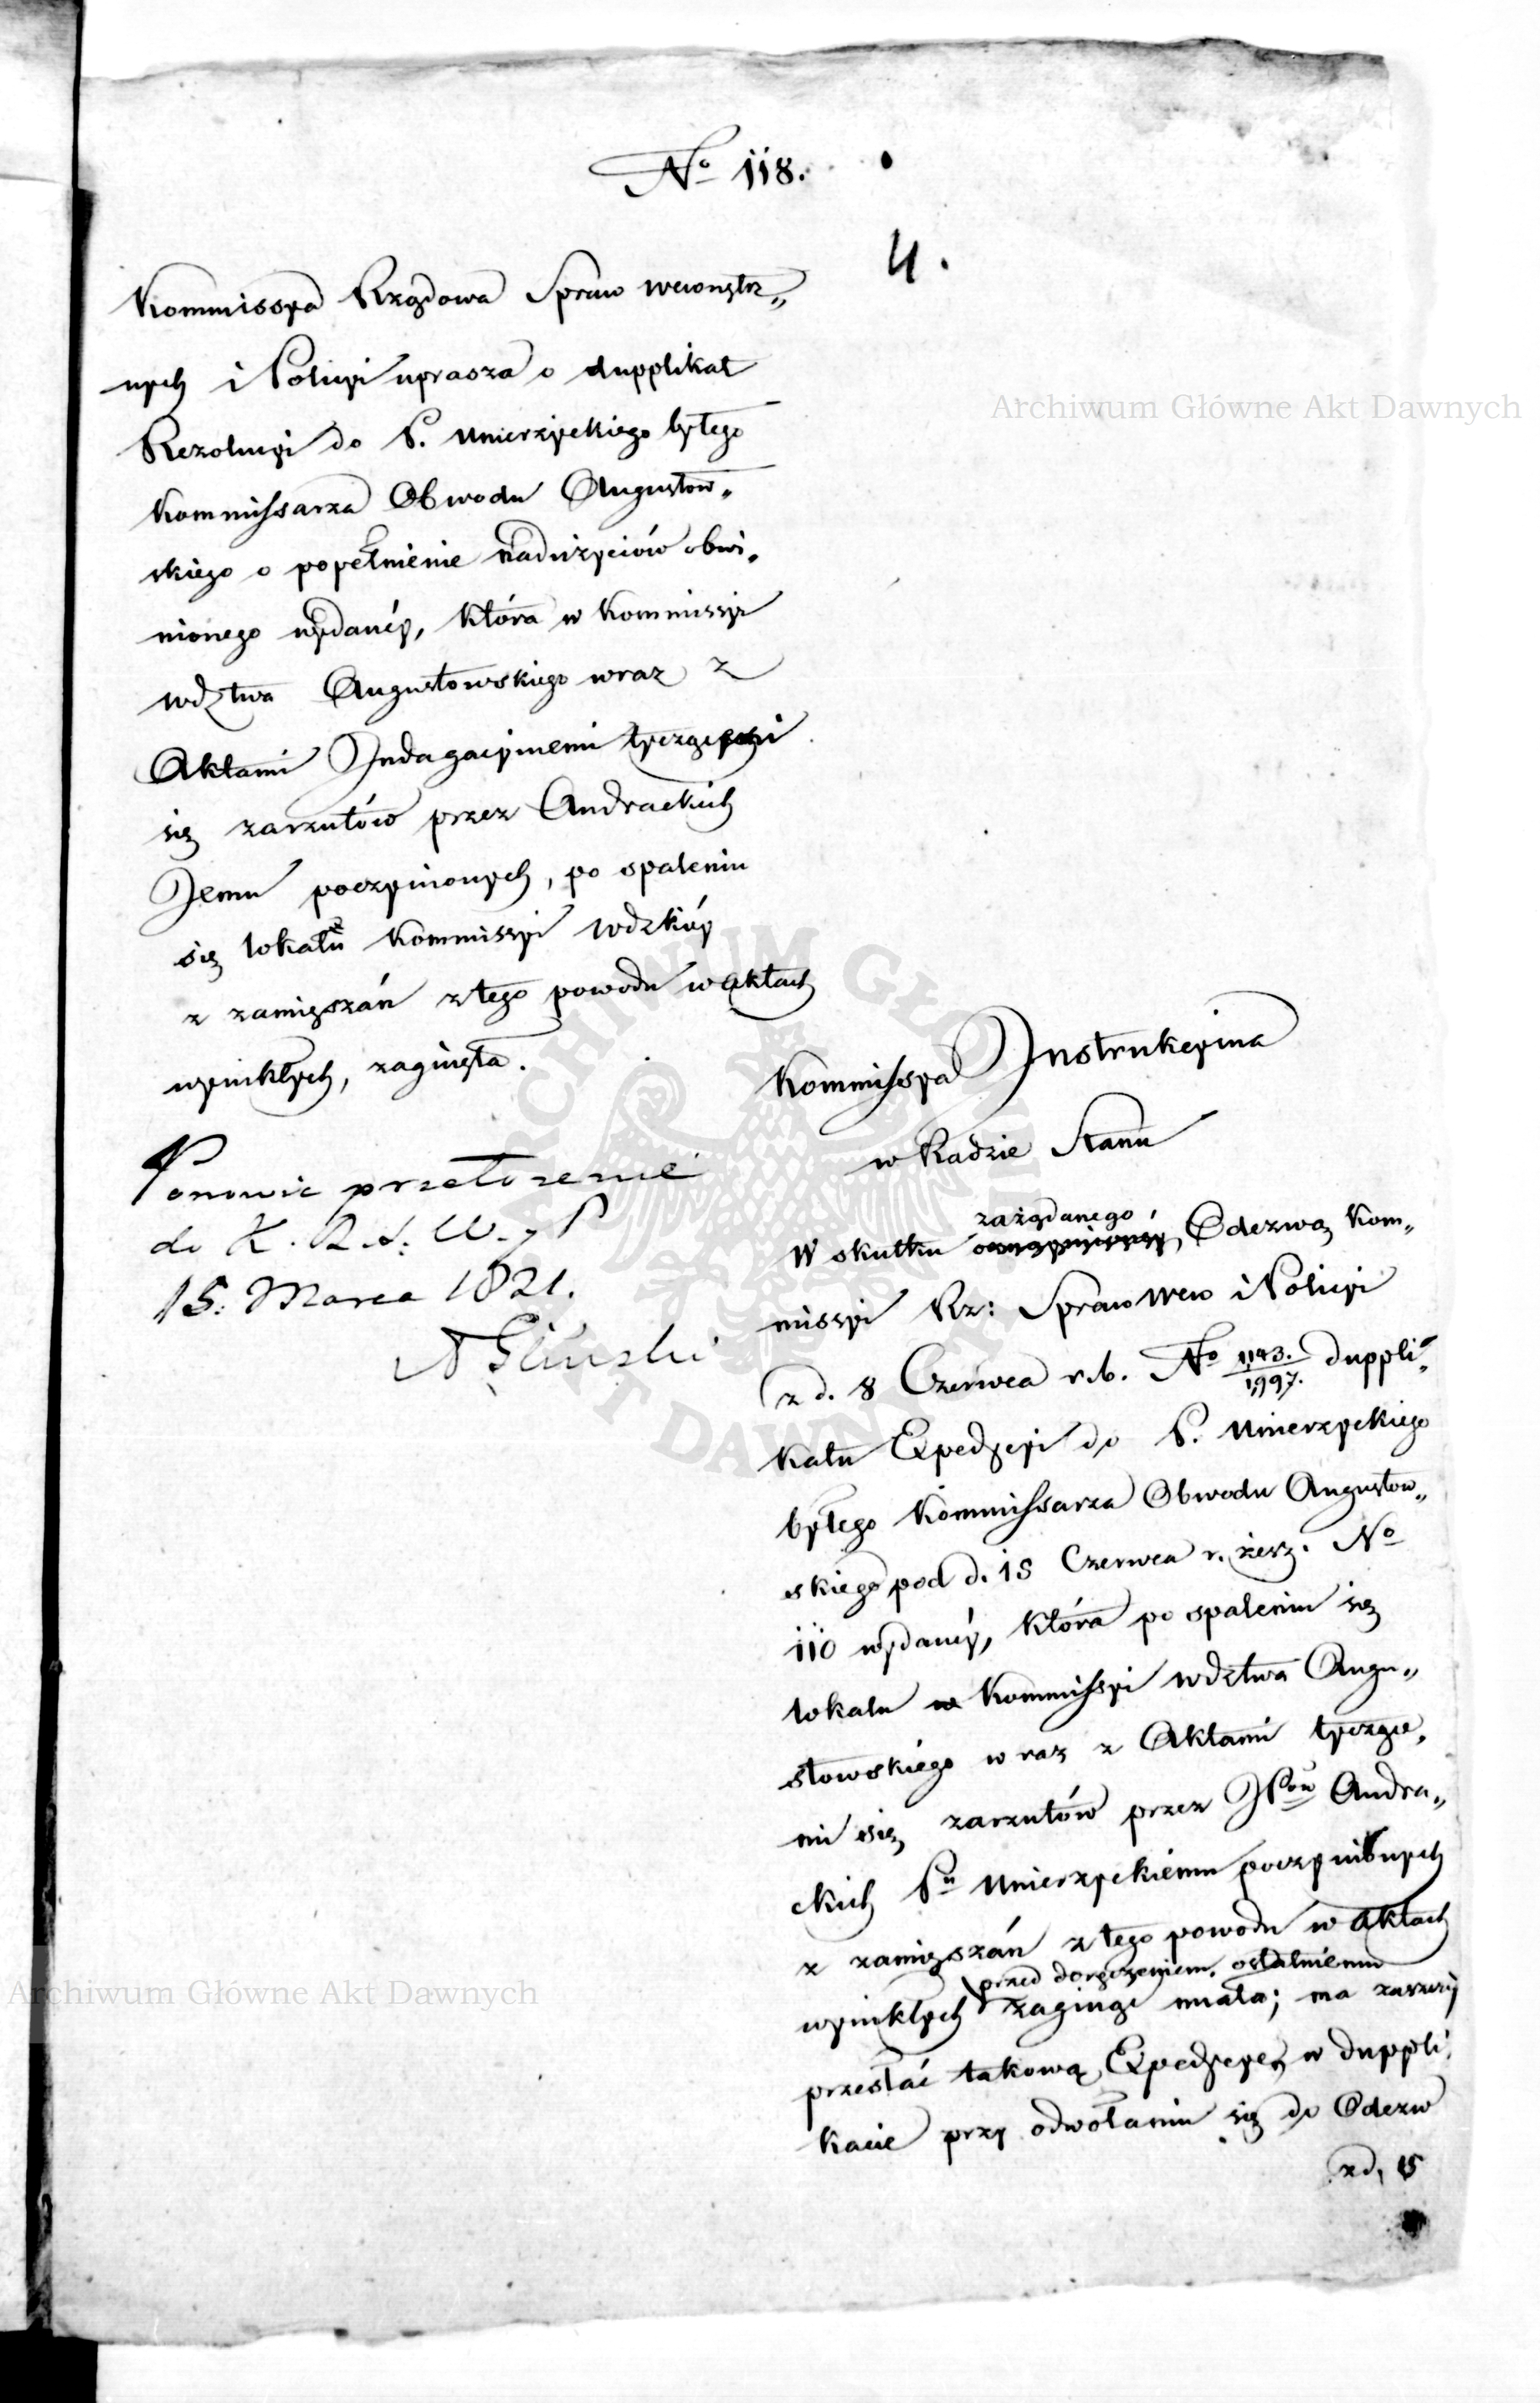 No 118.
4.
Kommissya Rządowa Spraw wewnętrz„
nych i Policyi uprasza o dupplikat
Rezolucyi do P. Mierzyckiego byłego
Kommissarza Obwodu Augustow„
skiego o popełnienie nadużyciów obwi„
nionego wydanéy, która w Kommissyi
wdztwa Augustowskiego wraz z
Aktami Indagacyinemi tyczącemi
się zarzutów przez Andrackich
Jemu poczynionych, po spaleniu
się lokalu Kommissyi wdzkiéy
z zamięszań z tego powodu w aktach
wynikłych, zaginęła.
Ponowić przełożenie
do K. R. S. W. y P
15. Marca 1821.
Gliński
Kommissya Instrukcyina
w Radzie Stanu
zażądanego
W skutku Odezwą Kom„
missyi Rz: Spraw Wew i Policyi
z d. 8 Czerwca r. b. No 1143./1,997. duppli„
katu Expedycyi do P. Mierzyckiego
byłego Kommissarza Obwodu Augustow„
skiego pod d. 15 Czerwca r. zesz. No
110 wydanéy, która po spaleniu się
lokalu w Kommissyi wdztwa Augu„
stowskiego wraz z Aktami tyczące„
mi się zarzutów przez JPow Andra„
ckich Pu Mierzyckiemu poczynionych
z zamięszań z tego powodu w aktach
przed doręczeniem ostatniemu
wynikłych zaginąć miała; ma zaszczyt
przesłać takową Expedycyę w duppli„
kacie przy odwołaniu się do Odezw
z d. 15
Archiwum Główne Akt Dawnych
Archiwum Główne Akt Dawnych
ARCHIWUM GŁÓWNE AKT DAWNYCH